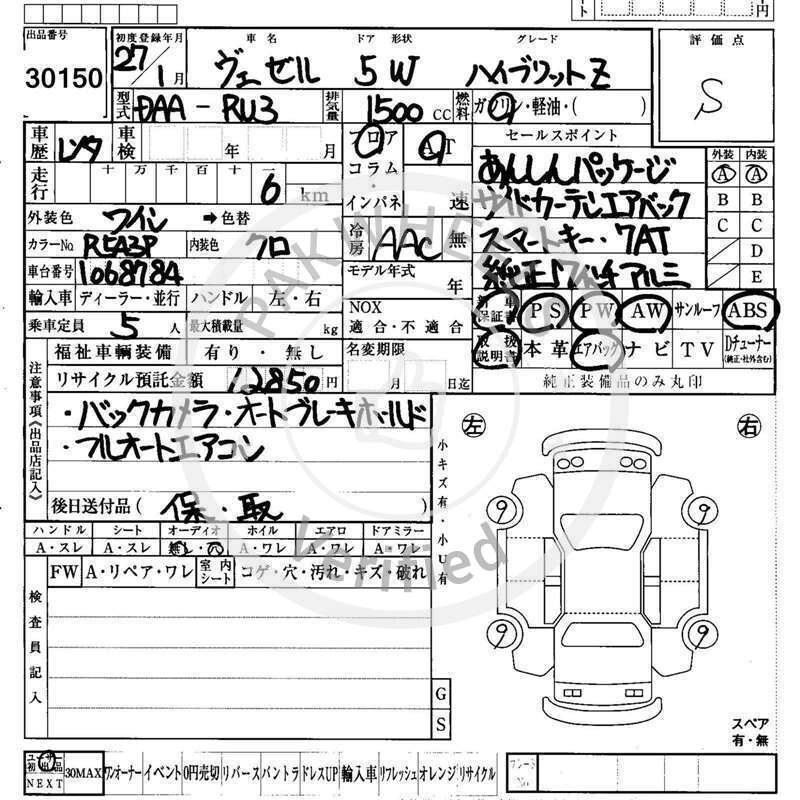 ト 円
出品番号 初度登録年月 車名 ドア 形状 グレード 評価点
30150 27年1月 ヴェゼル 5W ハイブリットZ S
型式 DAA-RU3 排気量 1500cc 燃料 ガソリン・軽油・( )
車歴 レンタ 車検 年 月 フロア AT セールスポイント
走行 十万千百十一 6 km コラム・インパネ 速 あんしんパッケージ 外装 内装
サイドカーテンエアバック A A
外装色 ワイン →色替 スマートキー・7AT B B
カラーNo. R543P 内装色 クロ 冷房 AAC 無 純正 アルミ C C
車台番号 1068784 モデル年式 年 D
E
輸入車 ディーラー・並行 ハンドル 左・右 NOX 新車保証書 PS PW AW サンルーフ ABS
乗車定員 5人 最大積載量 kg 適合・不適合 取扱説明書 本革 エアバック ナビ TV Dチューナー(純正・社外含む)
福祉車輌装備 有り・無し 名変期限 純正装備品のみ丸印
リサイクル預託金額 12850円 月 日迄
注意事項《出品店記入》
・バックカメラ・オートブレーキホールド
・フルオートエアコン
後日送付品( 保・取 )
小キズ有・小U有
左 右
ハンドル シート オーディオ ホイル エアロ ドアミラー
A・スレ A・スレ 無し・穴 A・ワレ A・ワレ A・ワレ
FW A・リペア・ワレ 室内シート コゲ・穴・汚れ・キズ・破れ
検査員記入
9 9
9 9
G
S
スペア
有・無
ユーザー初出品 NEXT 30MAX ワンオーナー イベント 0円売切 リバース バントラ ドレスUP 輸入車 リフレッシュ オレンジ リサイクル
PAKWHEELS
Verified